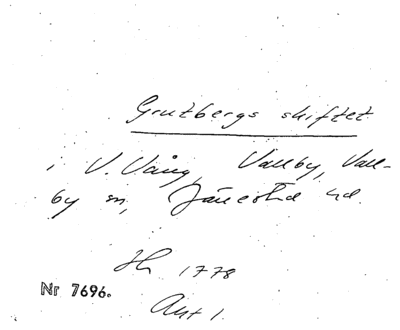 Grutbergs skiftet
i V. Vång, Vallby, Vall-
by sn, Järrestad hd.
Jh 1778
Nr 7696.
Akt 1.